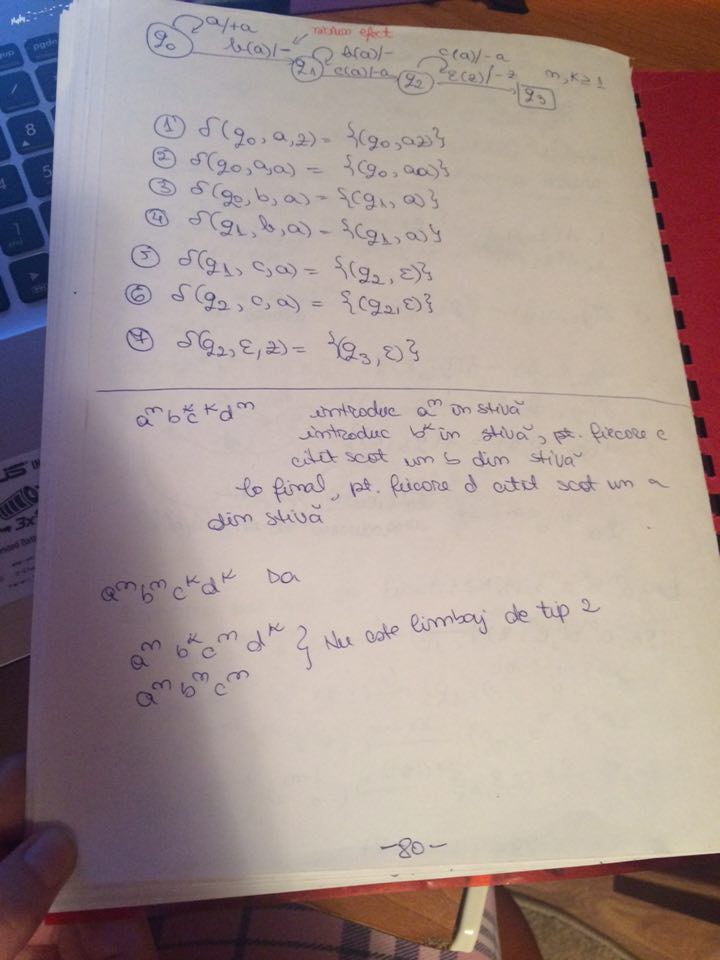 a/+a
niciun efect
b(a)/-
b(a)/-
c(a)/-a
q₀
q₁
c(a)/-a
q₂
ε(z)/-z
q₃
n,k≥1
① δ(q₀,a,z) = {(q₀,az)}
② δ(q₀,a,a) = {(q₀,aa)}
③ δ(q₀,b,a) = {(q₁,a)}
④ δ(q₁,b,a) = {(q₁,a)}
⑤ δ(q₁,c,a) = {(q₂,ε)}
⑥ δ(q₂,c,a) = {(q₂,ε)}
⑦ δ(q₂,ε,z) = {(q₃,ε)}
aⁿbᵏcᵏdⁿ introduc aⁿ în stivă
introduc bᵏ în stivă, pt. fiecare c
citit scot un b din stivă
la final, pt. fiecare d citit scot un a
din stivă
aⁿbⁿcᵏdᵏ Da
aⁿbᵏcⁿdᵏ } Nu este limbaj de tip 2
aⁿbⁿcⁿ
-80-
pgdn
8